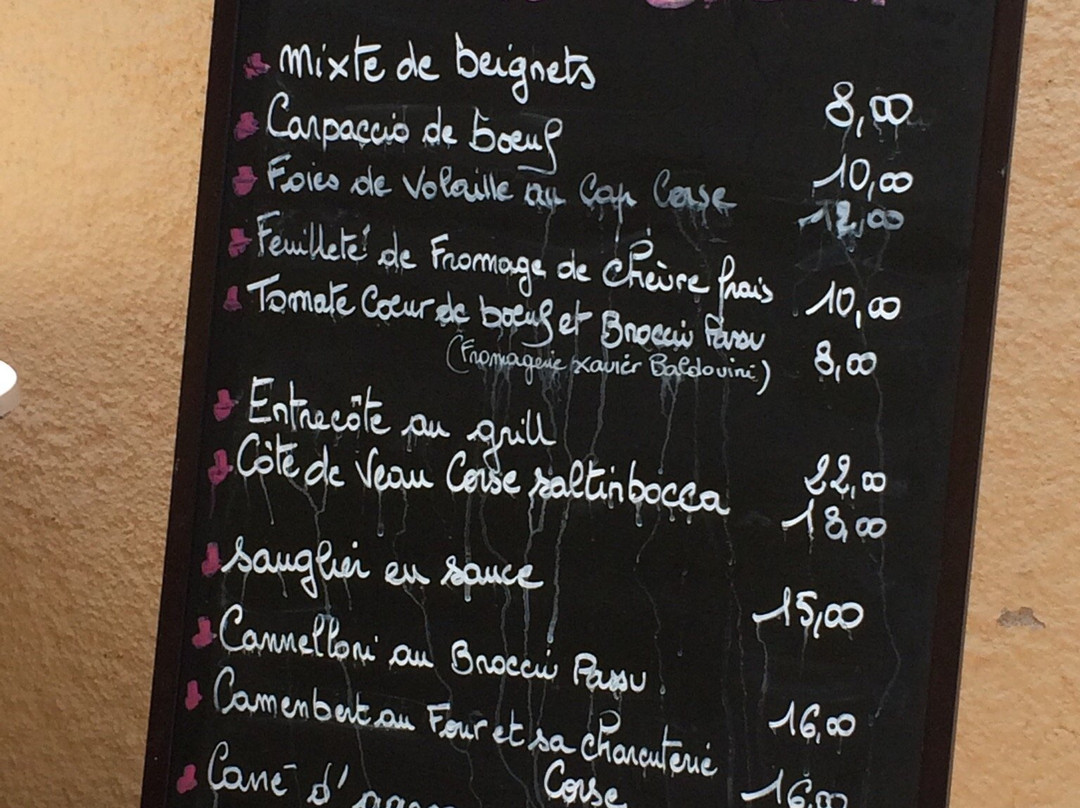 Mixte de beignets 8,00
Carpaccio de boeuf 10,00
Foies de Volaille au Cap Corse 12,00
Feuilleté de Fromage de Chèvre frais 10,00
Tomate Coeur de boeuf et Brocciu Passu 8,00
(Fromagerie Xavier Baldovini)
Entrecôte au grill 22,00
Côte de Veau Corse saltinbocca 18,00
Sanglier en sauce 15,00
Cannelloni au Brocciu Passu 16,00
Camembert au Four et sa charcuterie
Corse 16,00
Carré d'